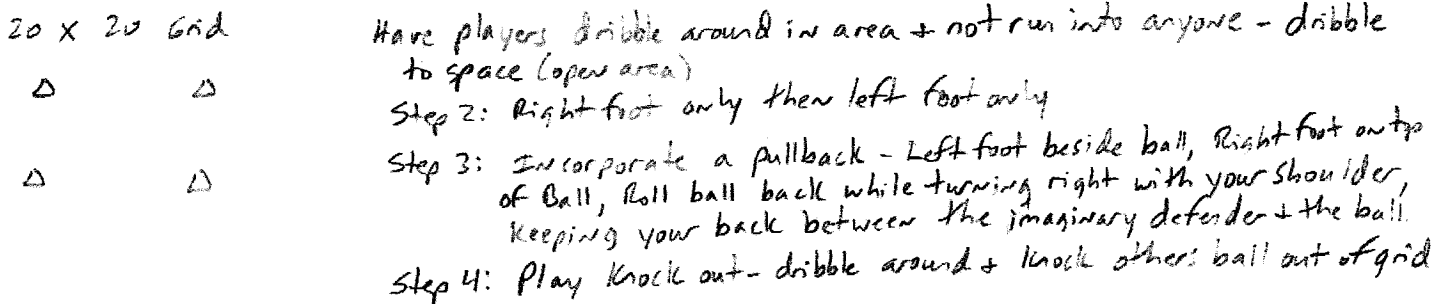 20 x 20 Grid
Have players dribble around in area + not run into anyone - dribble
to space (open area)
Step 2: Right foot only then left foot only
Step 3: Incorporate a pullback - Left foot beside ball, Right foot on top
of Ball, Roll ball back while turning right with your shoulder,
Keeping your back between the imaginary defender + the ball.
Step 4: Play Knock out - dribble around + knock others ball out of grid